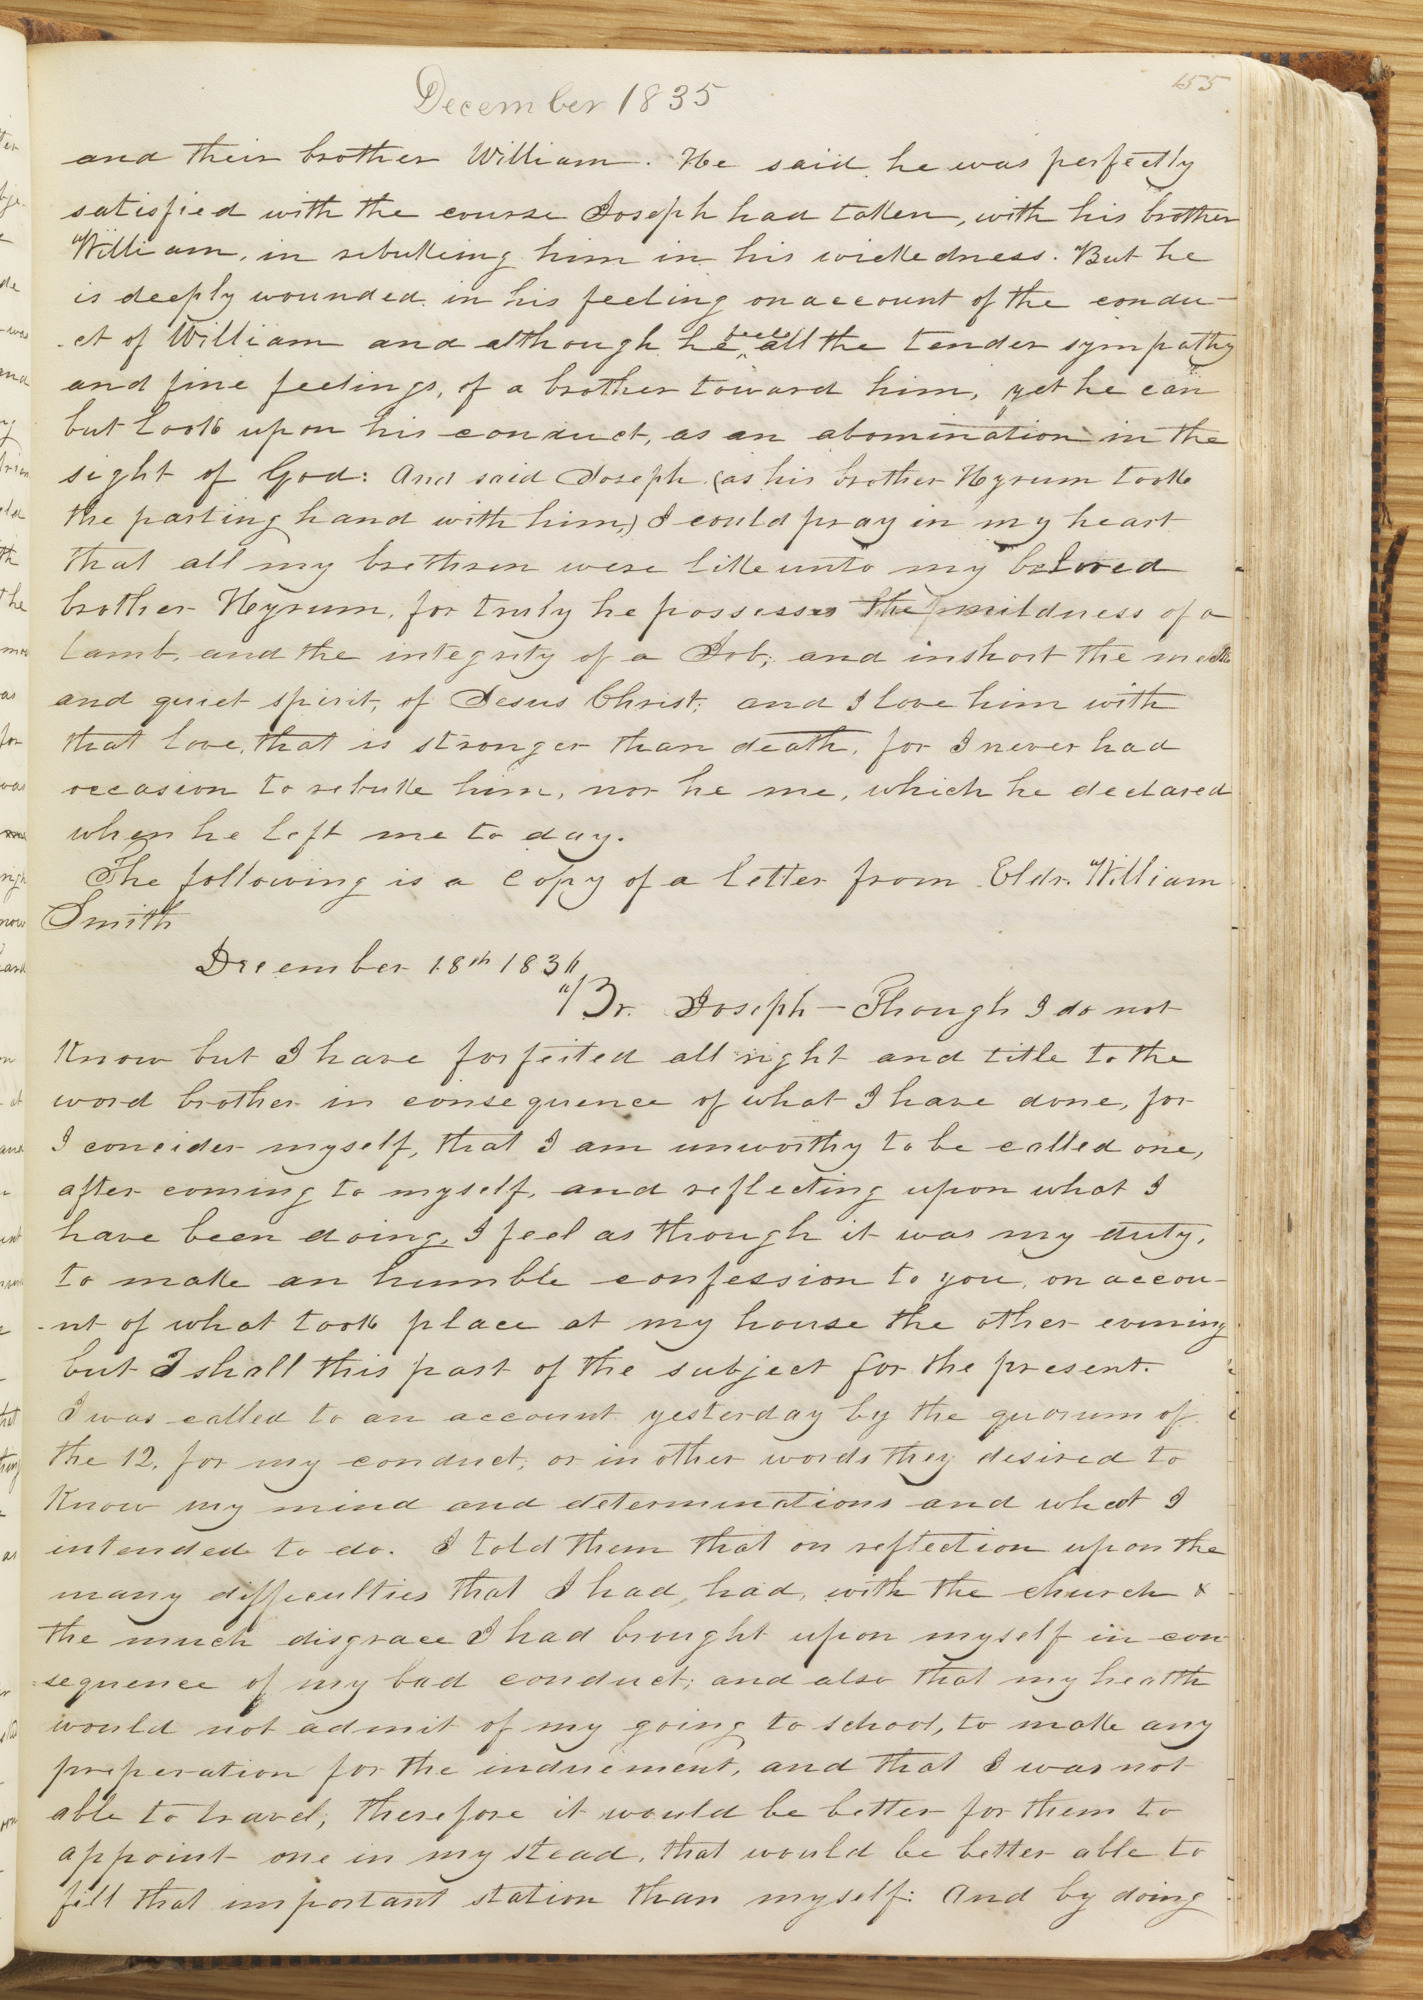 December 1835
155
and their brother William. He said he was perfectly
satisfied with the course Joseph had taken, with his brother
William, in rebukeing him in his wickedness. But he
is deeply wounded in his feeling on account of the condu-
-ct of William and although he feels all the tender sympathy
and fine feelings, of a brother toward him, yet he can
but look upon his conduct, as an abomination in the
sight of God: And said Joseph (as his brother Hyrum took
the parting hand with him,) I could pray in my heart
that all my brethren were like unto my beloved
brother Hyrum, for truly he possesses the mildness of a
lamb, and the integrity of a Job; and in short the meek
and quiet spirit, of Jesus Christ; and I love him with
that love, that is stronger than death, for I never had
occasion to rebuke him, nor he me, which he declared
when he left me to day.
The following is a copy of a letter from Eldr. William
Smith
December 18th 183
"Br. Joseph— Though I do not
know but I have forfeited all right and title to the
word brother in consequence of what I have done, for
I concider myself, that I am unworthy to be called one,
after coming to myself, and reflecting upon what I
have been doing, I feel as though it was my duty,
to make an humble confession to you, on accou-
-nt of what took place at my house the other evening
but I shall this part of the subject for the present.
I was called to an account yesterday by the quorum of
the 12, for my conduct; or in other words they desired to
know my mind and determinations and what I
intended to do. I told them that on reflection upon the
many difficulties that I had had, with the church &
the much disgrace I had brought upon myself in con
-sequence of my bad conduct; and also that my health
would not admit of my going to school, to make any
preperation for the induement, and that I was not
able to travel; therefore it would be better for them to
appoint one in my stead, that would be better able to
fill that important station than myself: And by doing